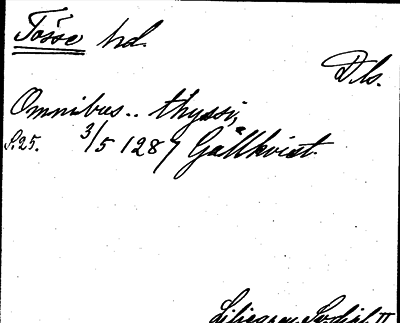 Tösse hd.
Dls.
Omnibus.. thyssi,
S. 25. 3/5 1287 Gällkvist.
Liliegren, Sv. dipl. II